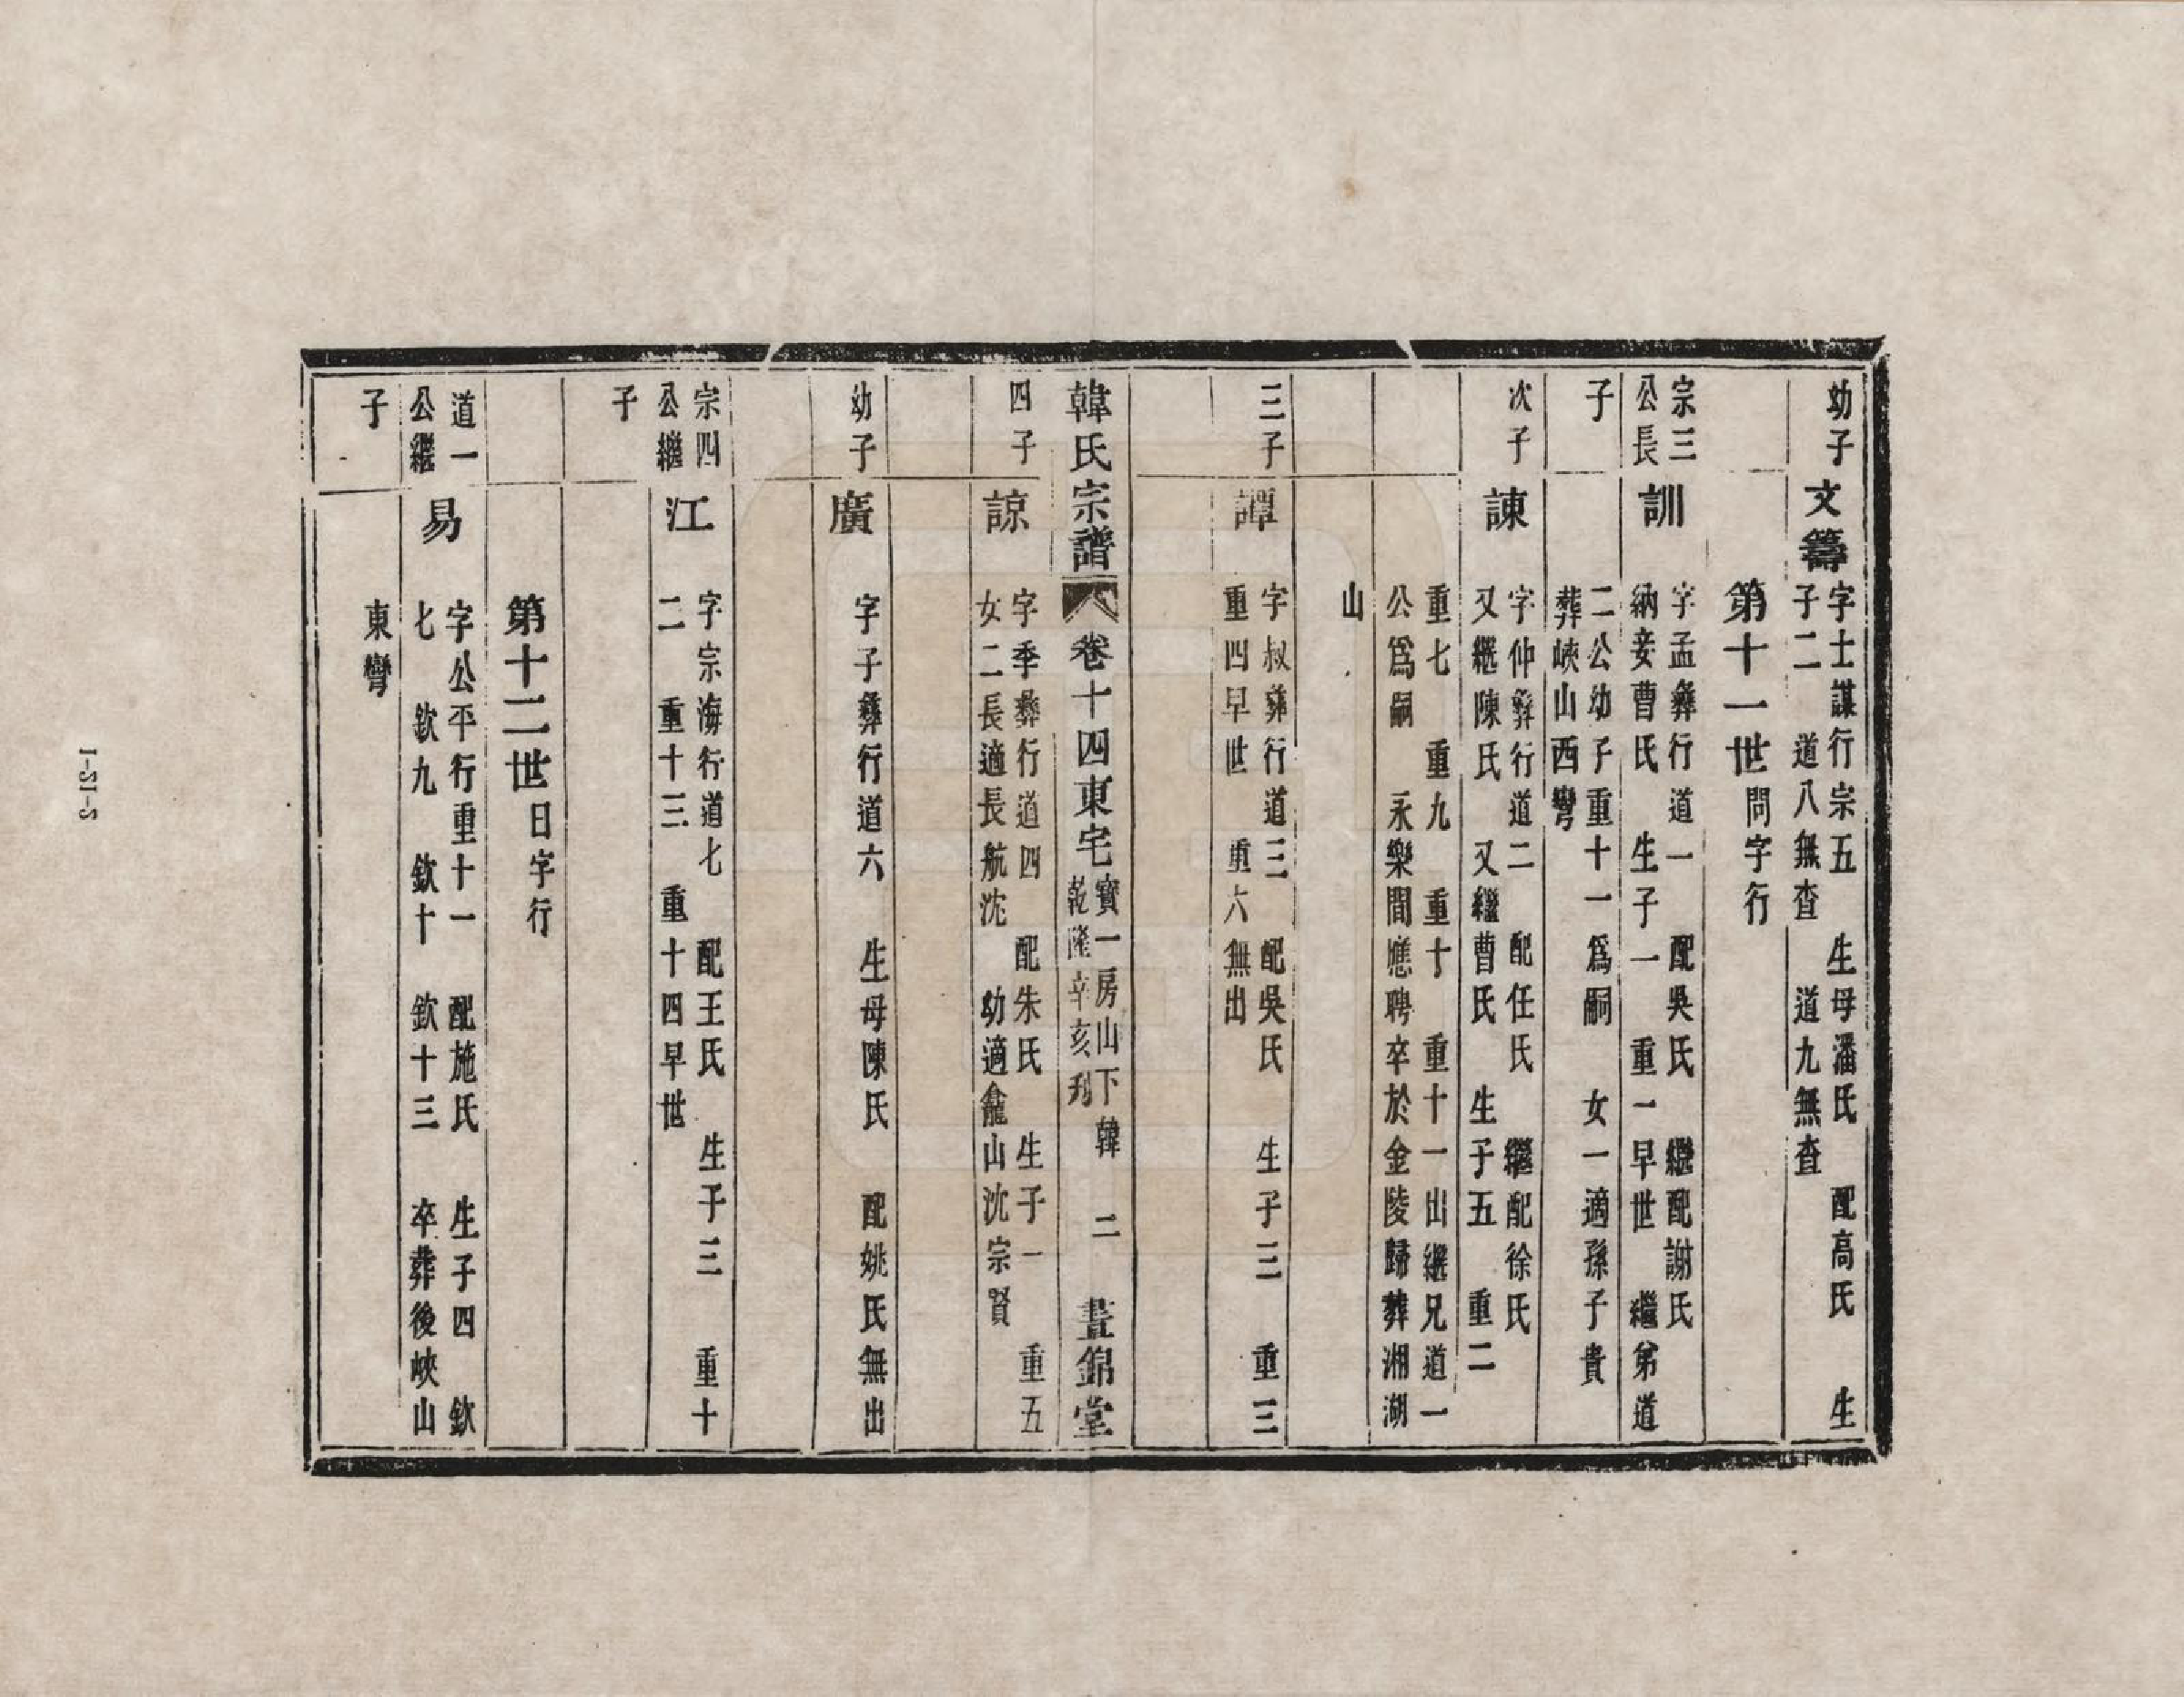 幼子
文籌
字士謀行宗五 生母潘氏 配高氏 生
子二 道八無查 道九無查
第十一世問字行
宗三
公長
子
訓
字孟彝行道一 配吳氏 繼配謝氏
納妾曹氏 生子一 重一早世 繼弟道
二公幼子重十一爲嗣 女一適孫子貴
葬峽山西彎
次子
諫
字仲彝行道二 配任氏 繼配徐氏
又繼陳氏 又繼曹氏 生子五 重二
重七 重九 重十 重十一出繼兄道一
公爲嗣 永樂間應聘卒於金陵歸葬湘湖
山
三子
譚
字叔彝行道三 配吳氏 生子三 重三
重四早世 重六無出
韓氏宗譜 卷十四東宅 寶一房山下韓 二 晝錦堂
乾隆辛亥刋
四子
諒
字季彝行道四 配朱氏 生子一 重五
女二長適長航沈 幼適龕山沈宗賢
幼子
廣
字子彝行道六 生母陳氏 配姚氏無出
宗四
公繼
子
江
字宗海行道七 配王氏 生子三 重十
二 重十三 重十四早世
第十二世日字行
道一
公繼
子
易
字公平行重十一 配施氏 生子四 欽
七 欽九 欽十 欽十三 卒葬後峽山
東彎
1-21-2